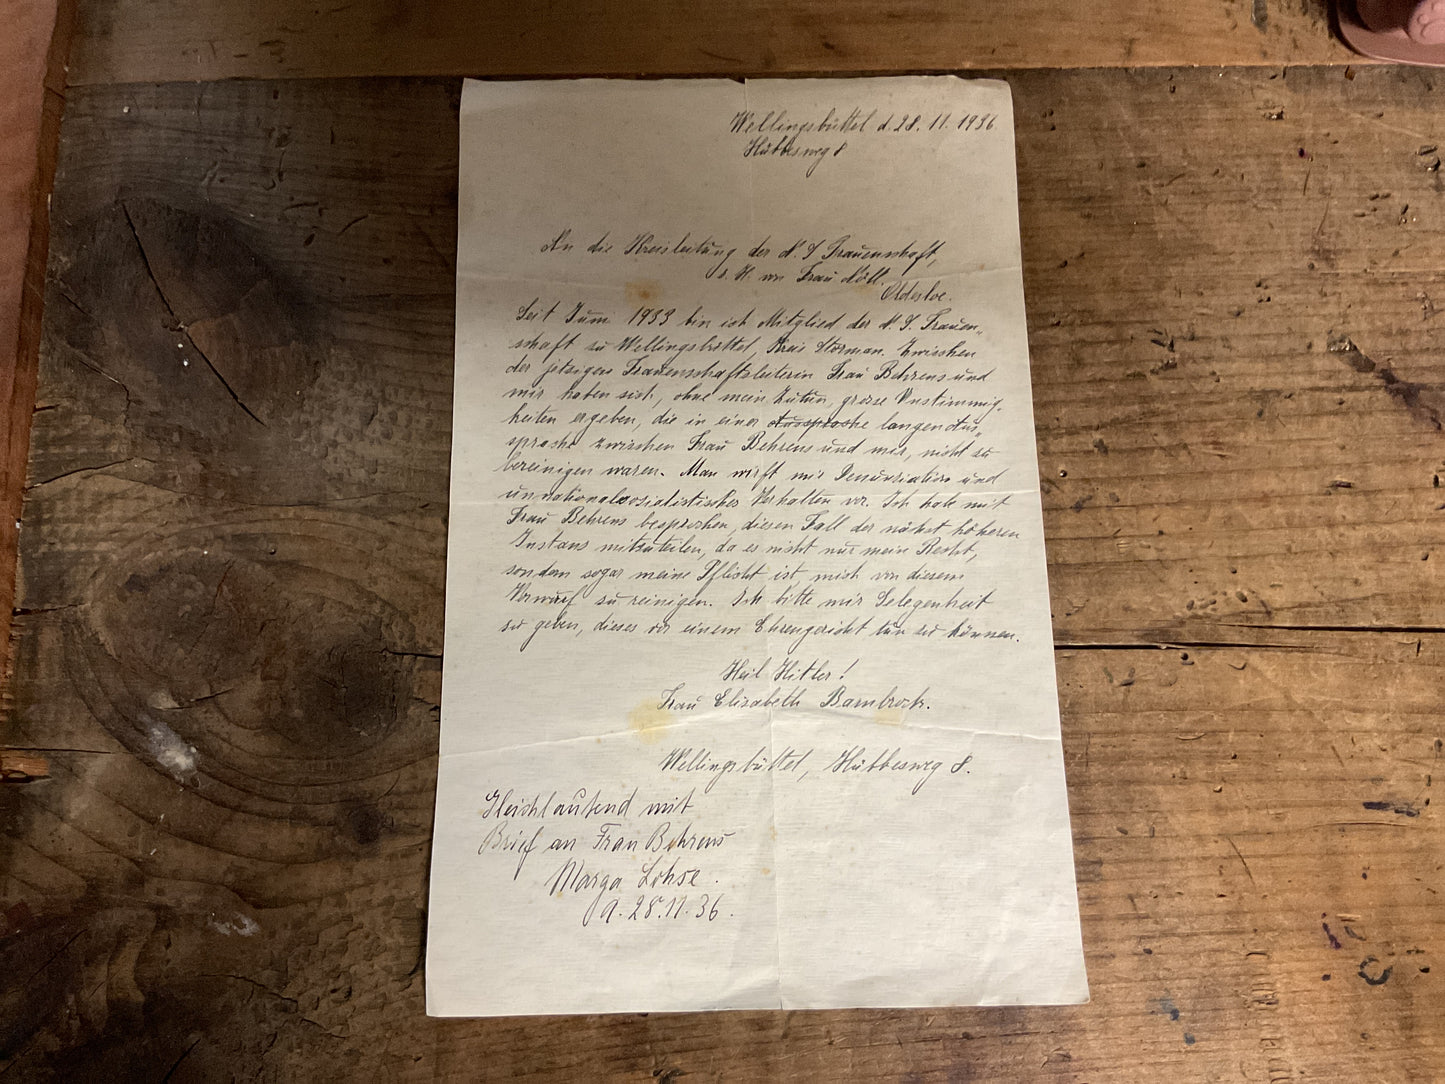 Wellingsbüttel d. 28. 11. 1936.
Hübbesweg 8
An die Kreisleitung der N. S Frauenschaft,
z. H. von Frau Nöll.
Oldesloe.
Seit Juni 1933 bin ich Mitglied der N. S. Frauen-
schaft zu Wellingsbüttel, Kreis Storman. Zwischen
der jetzigen Frauenschaftsleiterin Frau Behrens und
mir haben sich, ohne mein Zutun, grosse Unstimmig-
heiten ergeben, die in einer Aussprache langen Aus-
sprache zwischen Frau Behrens und mir, nicht zu
bereinigen waren. Man wirft mir Denunziation und
unnationalsozialistisches Verhalten vor. Ich habe mit
Frau Behrens besprochen, diesen Fall der nächst höheren
Instanz mitzuteilen, da es nicht nur mein Recht,
sondern sogar meine Pflicht ist, mich von diesem
Vorwurf zu reinigen. Ich bitte mir Gelegenheit
zu geben, dieses vor einem Ehrengericht tun zu können.
Heil Hitler!
Frau Elisabeth Bambrock.
Wellingsbüttel, Hübbesweg 8.
Gleichlautend mit
Brief an Frau Behrens
Marga Lohse.
a. 28.11.36.